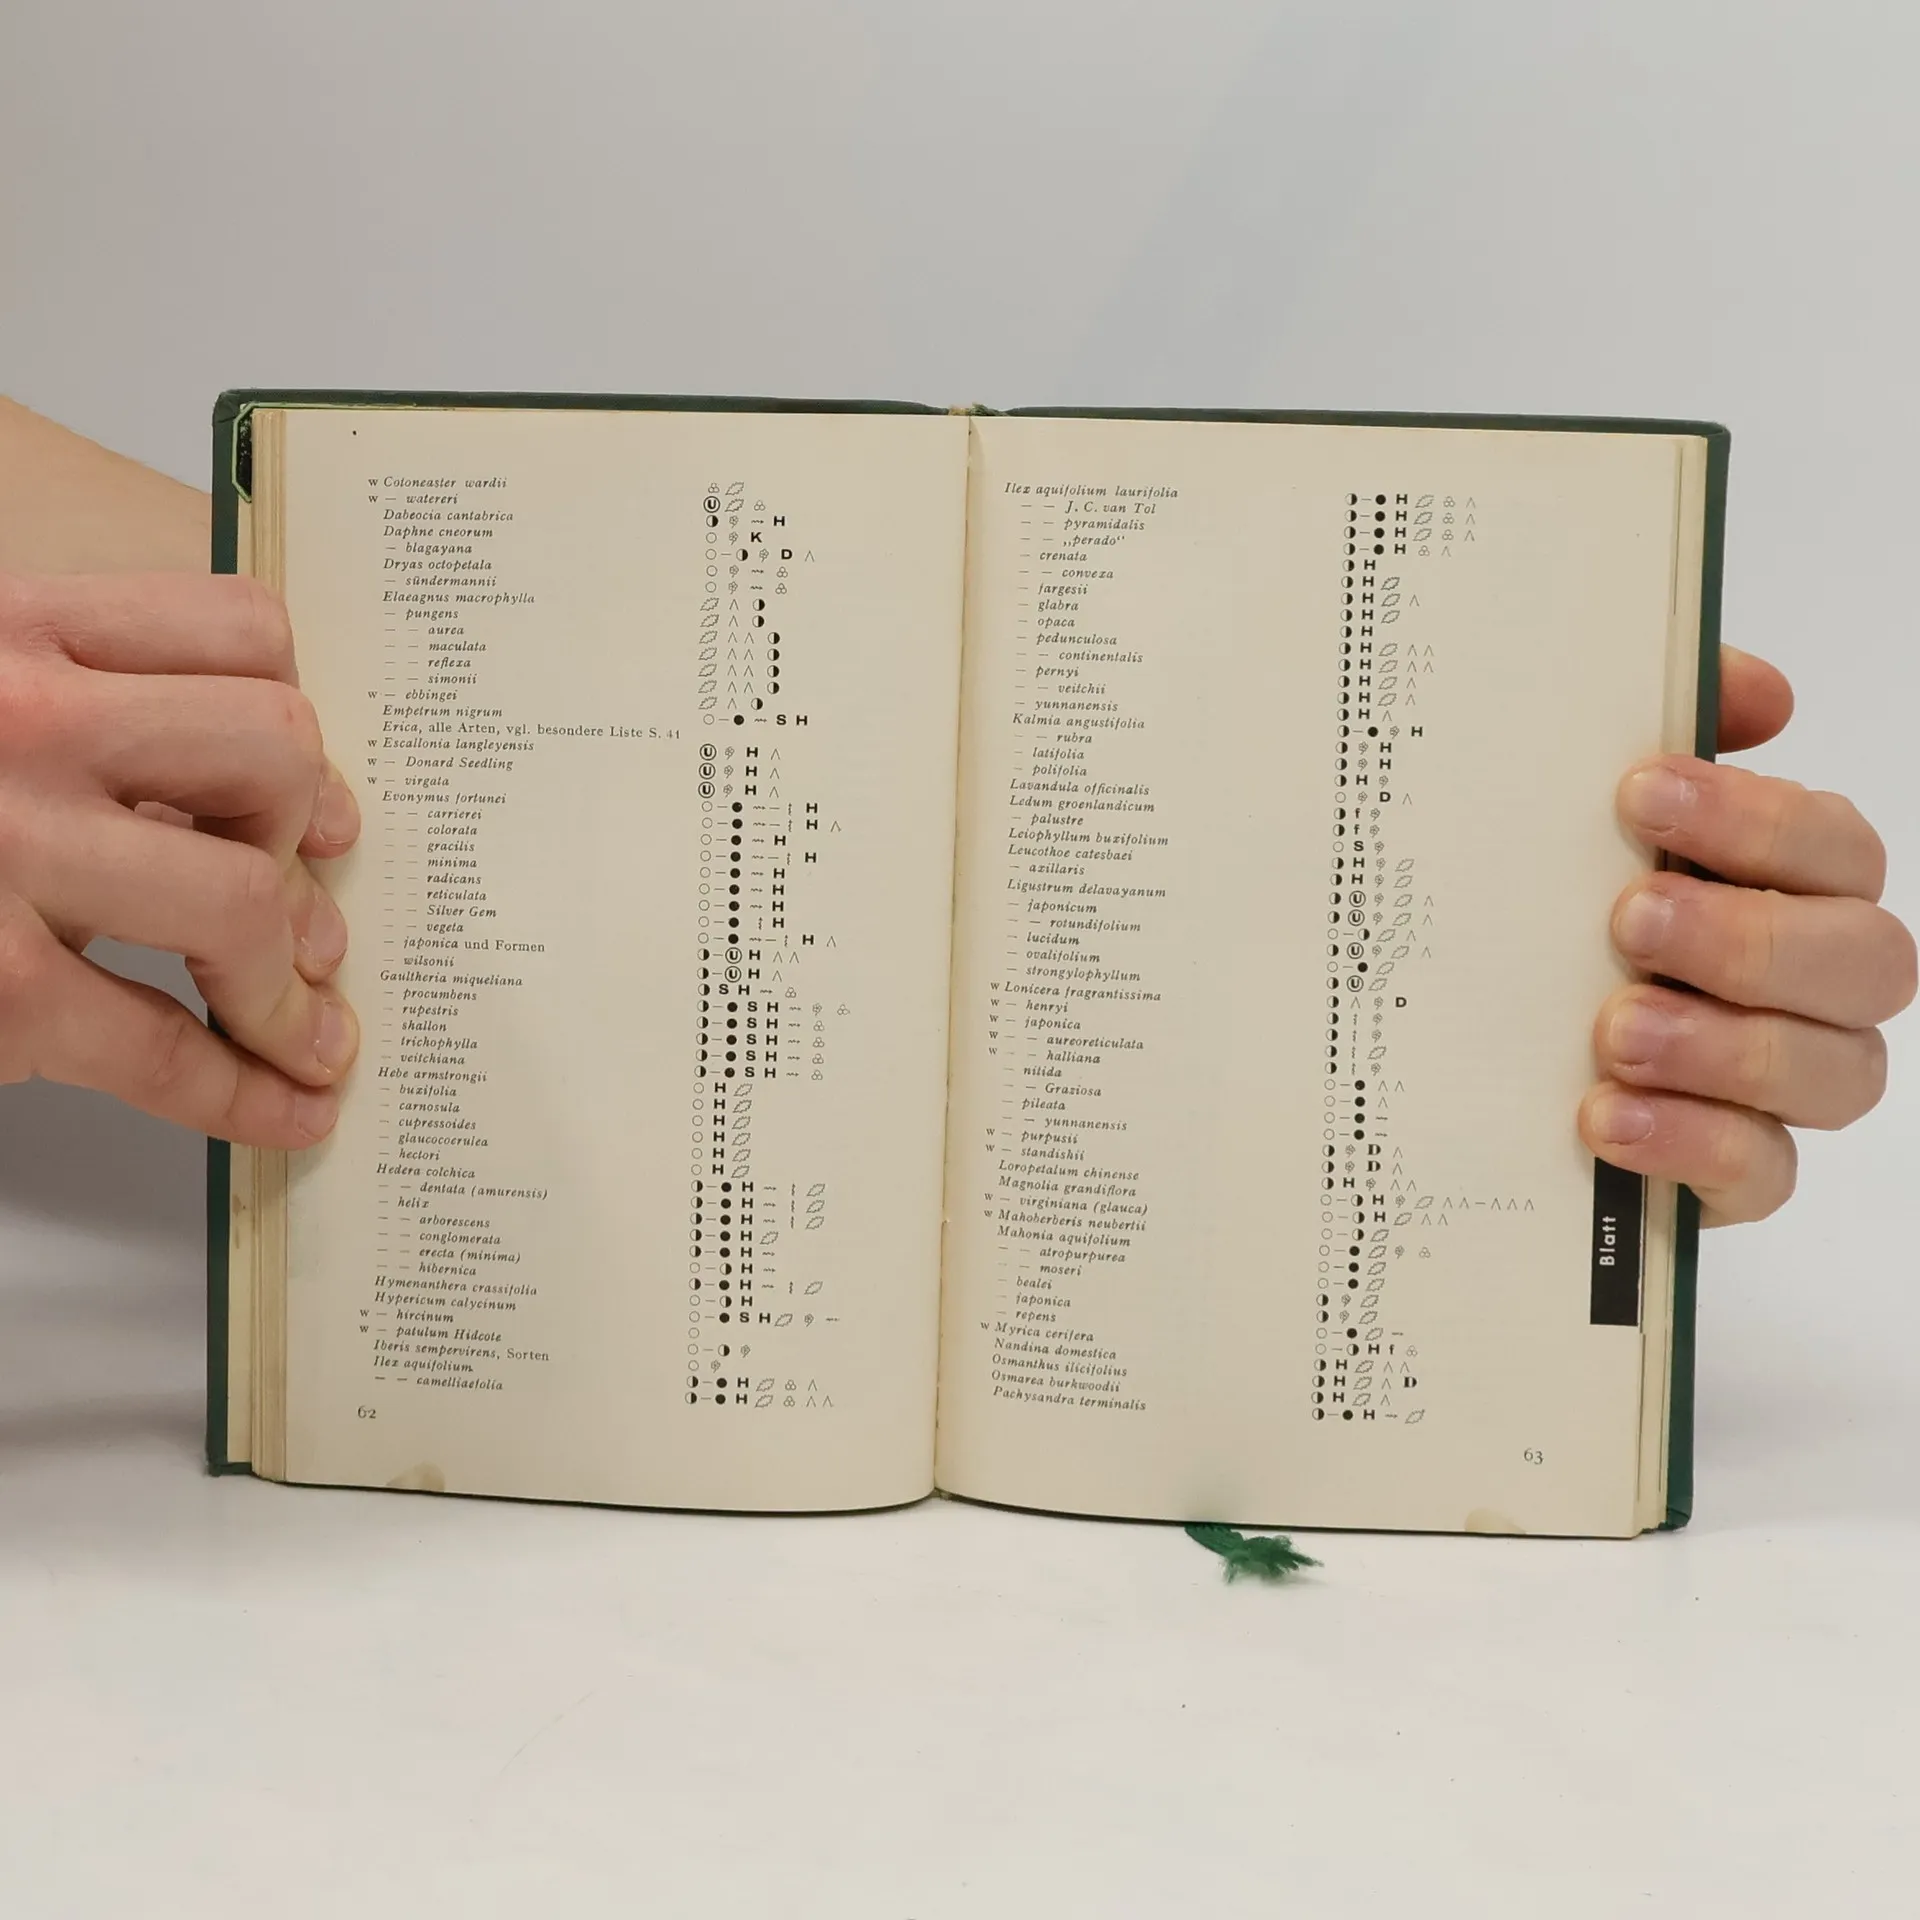 w Cotoneaster wardii
w — watereri
Dabeocia cantabrica
Daphne cneorum
— blagayana
Dryas octopetala
— sündermannii
Elaeagnus macrophylla
— pungens
— — aurea
— — maculata
— — reflexa
— — simonii
w — ebbingei
Empetrum nigrum
Erica, alle Arten, vgl. besondere Liste S. 41
w Escallonia langleyensis
w — Donard Seedling
w — virgata
Evonymus fortunei
— — carrierei
— — colorata
— — gracilis
— — minima
— — radicans
— — reticulata
— — Silver Gem
— — vegeta
— japonica und Formen
— wilsonii
Gaultheria miqueliana
— procumbens
— rupestris
— shallon
— trichophylla
— veitchiana
Hebe armstrongii
— buxifolia
— carnosula
— cupressoides
— glaucocoerulea
— hectori
Hedera colchica
— — dentata (amurensis)
— helix
— — arborescens
— — conglomerata
— — erecta (minima)
— — hibernica
Hymenanthera crassifolia
Hypericum calycinum
w — hircinum
w — patulum Hidcote
Iberis sempervirens, Sorten
Ilex aquifolium
— — camelliaefolia
H
K
D
S H
H
H
H
H
H
H
H
H
H
H
H
H
H
H
S H
S H
S H
S H
S H
S H
H
H
H
H
H
H
H
H
H
H
H
H
H
H
S H
H
H
62
Ilex aquifolium laurifolia
— — J. C. van Tol
— — pyramidalis
— — „perado“
— crenata
— — convexa
— fargesii
— glabra
— opaca
— pedunculosa
— — continentalis
— pernyi
— — veitchii
— yunnanensis
Kalmia angustifolia
— — rubra
— latifolia
— polifolia
Lavandula officinalis
Ledum groenlandicum
— palustre
Leiophyllum buxifolium
Leucothoe catesbaei
— axillaris
Ligustrum delavayanum
— japonicum
— — rotundifolium
— lucidum
— ovalifolium
— strongylophyllum
w Lonicera fragrantissima
w — henryi
w — japonica
w — — aureoreticulata
w — — halliana
— nitida
— — Graziosa
— pileata
— — yunnanensis
w — purpusii
w — standishii
Loropetalum chinense
Magnolia grandiflora
w — virginiana (glauca)
w Mahoberberis neubertii
Mahonia aquifolium
— — atropurpurea
— — moseri
— bealei
— japonica
— repens
w Myrica cerifera
Nandina domestica
Osmanthus ilicifolius
Osmarea burkwoodii
Pachysandra terminalis
H
H
H
H
H
H
H
H
H
H
H
H
H
H
H
H
H
H
D
f
f
S
H
H
D
D
D
H
H
H
H f
H
H D
H
H
63
Blatt